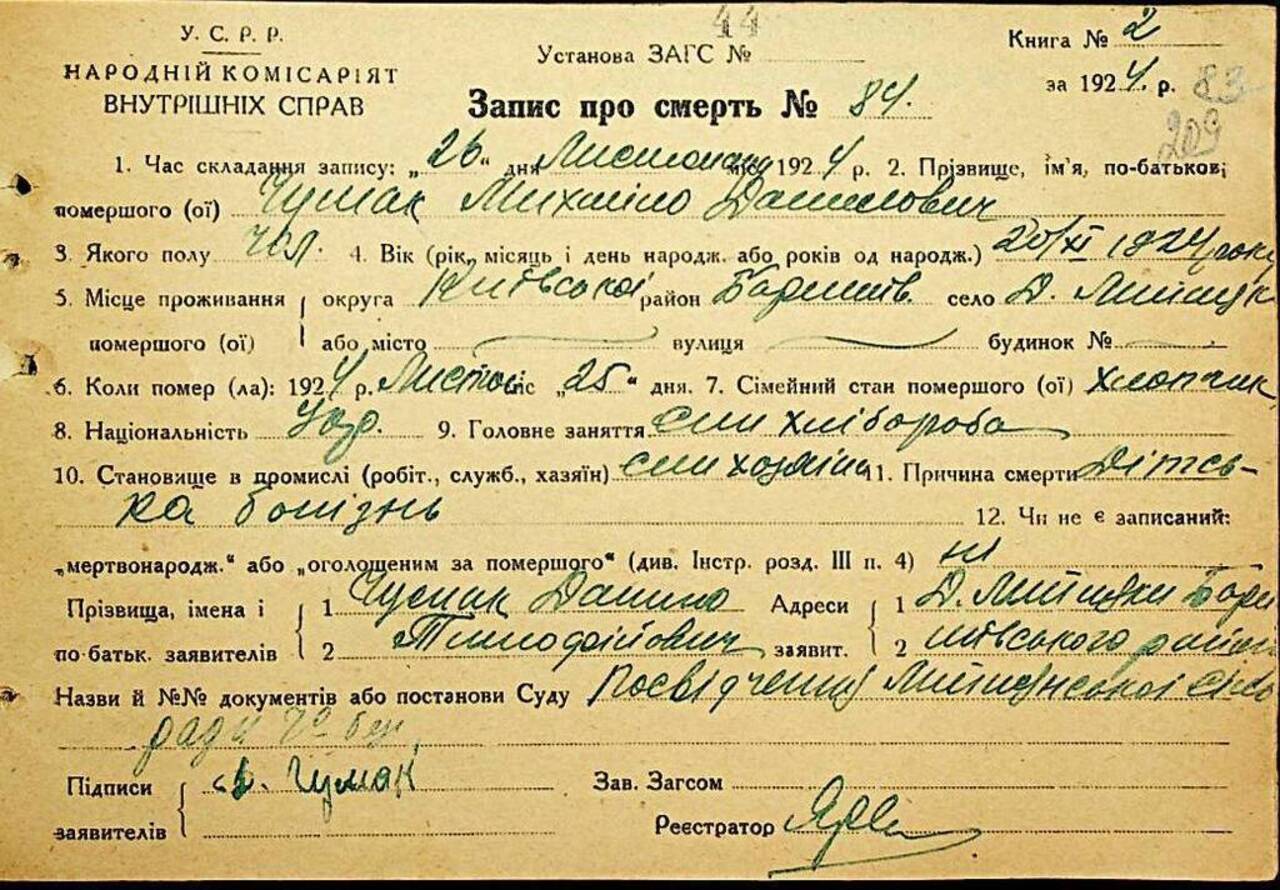 44
У. С. Р. Р.
НАРОДНІЙ КОМІСАРІЯТ
ВНУТРІШНІХ СПРАВ
Установа ЗАГС №
Книга № 2
за 1924. р. 83
209
Запис про смерть № 84.
1. Час складання запису: „26“ дня Листопад міс 1924 р. 2. Прізвище, ім'я, по-батькові
помершого (ої) Чумак Михайло Данилович
3. Якого полу чол. 4. Вік (рік, місяць і день народж. або років од народж.) 20/XI 1924 року
5. Місце проживання округа Київської район Баришів. село Д.
помершого (ої) або місто вулиця будинок №
6. Коли помер (ла): 1924 р. Листоп міс „25“ дня. 7. Сімейний стан помершого (ої) хлопчик
8. Національність Укр. 9. Головне заняття син хлібороба
10. Становище в промислі (робіт., служб., хазяїн) син хозяїна 11. Причина смерти Дітсь-
ка болізнь 12. Чи не є записаний:
„мертвонародж.“ або „оголошеним за помершого“ (див. Інстр. розд. III п. 4) ні
Прізвища, імена і 1 Чумак Данило Адреси 1 Д. Бари
по-батьк. заявителів 2 Тимофійович заявит. 2 шівського район
Назви й №№ документів або постанови Суду Посвідчення сіль
ради
Підписи Д. Чумак Зав. Загсом
заявителів Реєстратор